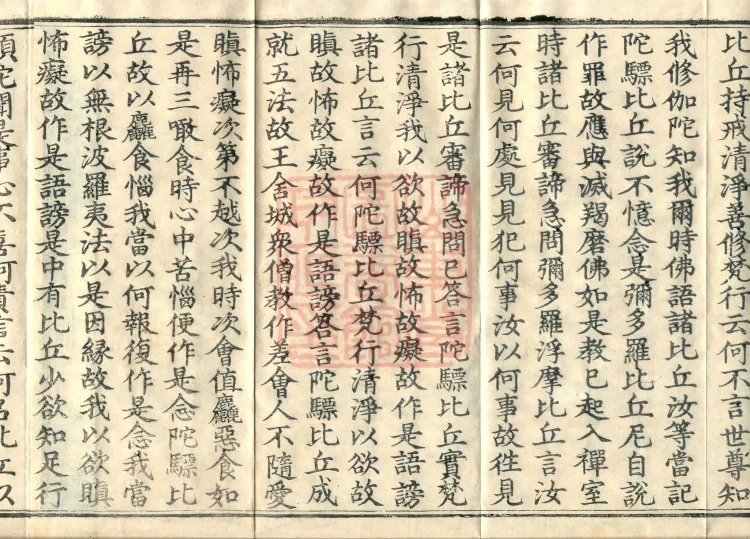 比丘持戒清淨善修梵行云何不言世尊知
我修伽陀知我爾時佛語諸比丘汝等當記
陀驃比丘說不憶念是彌多羅比丘尼自說
作罪故應與滅羯磨佛如是教已起入禪室
時諸比丘審諦急問彌多羅浮摩比丘言汝
云何見何處見見犯何事汝以何事故徃見
是諸比丘審諦急問已答言陀驃比丘實梵
行清淨我以欲故瞋故怖故癡故作是語謗
諸比丘言云何陀驃比丘梵行清淨以欲故
瞋故怖故癡故作是語謗答言陀驃比丘成
就五法故王舍城衆僧教作差會人不隨愛
瞋怖癡次第不越次我時次會值麤惡食如
是再三噉食時心中苦惱便作是念陀驃比
丘故以麤食惱我當以何報復作是念我當
謗以無根波羅夷法以是因縁故我以欲瞋
怖癡故作是語謗是中有比丘少欲知足行
頭陀聞是事心不喜呵責言云何名比丘以